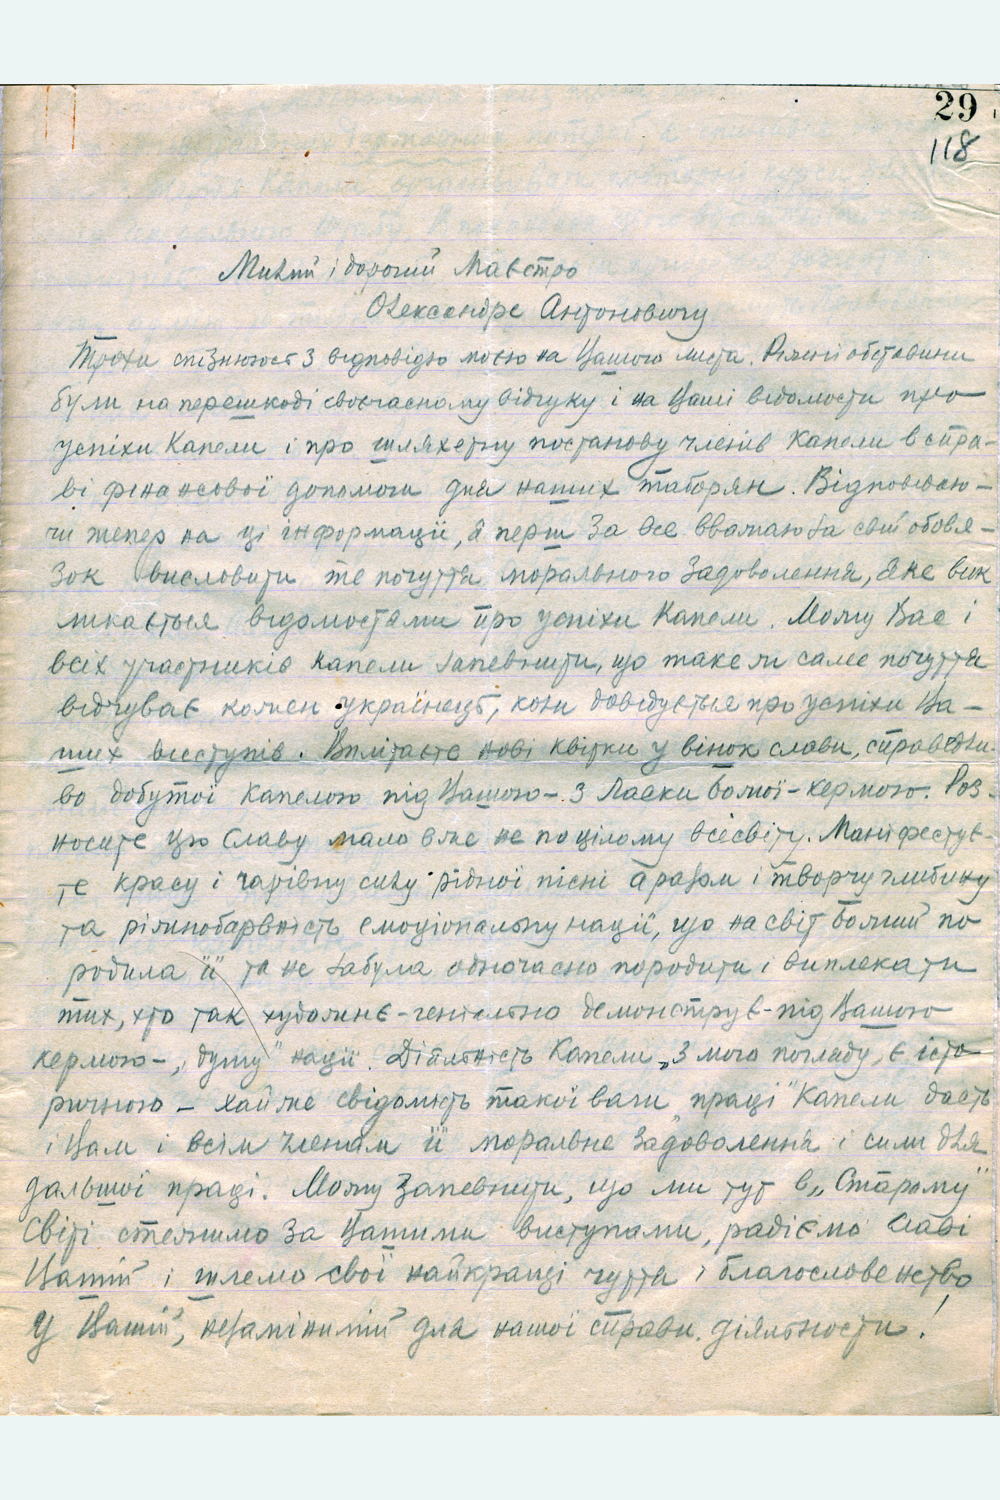 29
118
Милий і дорогий Маестро
Олександре Антоновичу
Трохи спізнююсь з відповідю моєю на Вашого листа. Ріжні обставини
були на перешкоді своєчасному відгуку і на Ваші відомости про
успіхи Капели і про шляхетну постанову членів Капели в спра-
ві фінансової допомоги для наших таборян. Відповіюю-
чи тепер на ці інформації, я перш за все вважаю за свій обовя-
зок висловити те почуття морального задоволення, яке вик
ликається відомостями про успіхи Капели. Можу Вас і
всіх участників Капели запевнити, що таке ж саме почуття
відчуває кожен українець, коли довідується про успіхи Ва-
ших виступів. Вплітаєте нові квітки у вінок слави, справедли-
во добутої Капелою під Вашою – з Ласки Божої – кермою. Роз-
носите цю Славу мало вже не по цілому всесвіту. Маніфестує-
те красу і чарівну силу рідної пісні а разом і творчу глибину
та ріжнобарвність емоціональну нації, що на світ Божий по
родила її та не забула одночасно породити і виплекати
тих, хто так художнє-геніально демонструє – під Вашою
кермою – „душу" нації. Діяльність Капели, з мого погляду, є істо
ричною – хай же свідомість такої ваги „праці" Капели дасть
і Вам і всім членам її моральне задоволення і сили для
дальшої праці. Можу запевнити, що ми тут в „Старому"
Світі стежимо за Вашими виступами, радіємо Славі
Вашій і шлемо свої найкращі чуття і благословенство
у Вашій, незамінимій для нашої справи, діяльности!